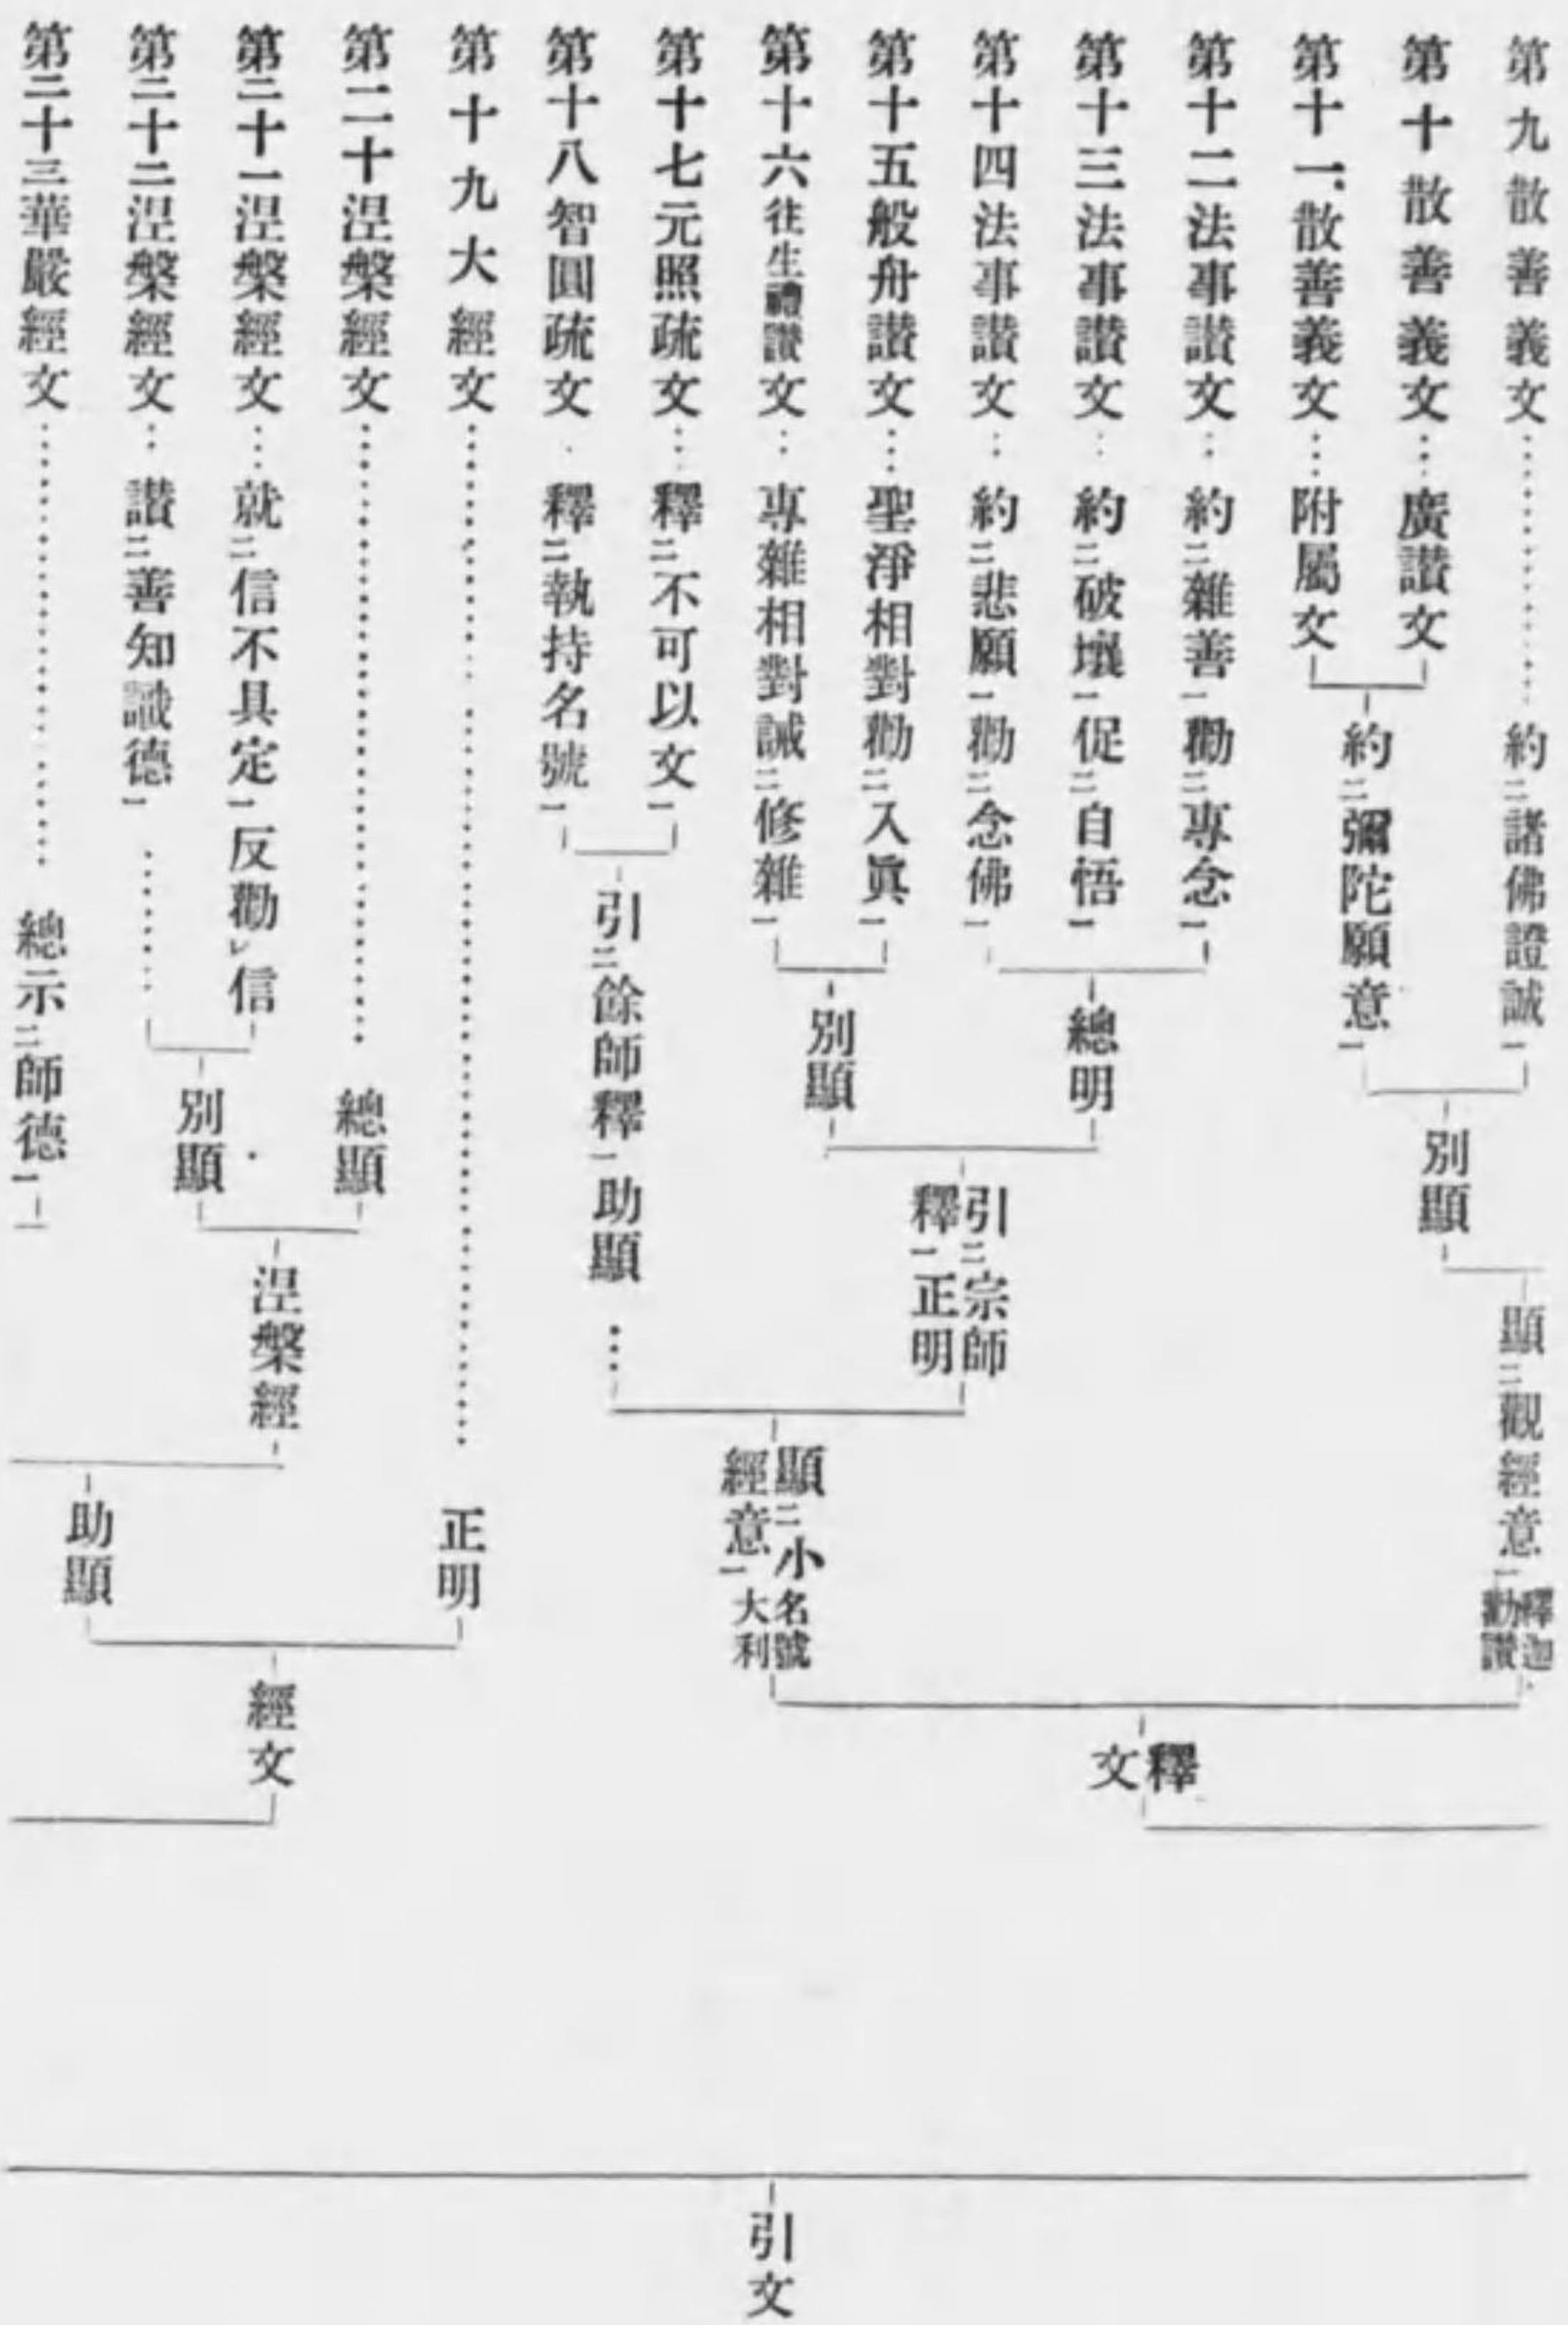 第九散善義文………約㆓諸佛證誠㆒
第十散善義文…廣讃文
第十一散善義文…附屬文
約㆓彌陀願意㆒
別顯
顯㆓觀經意㆒釋迦勸讃
第十二法事讃文…約㆓雜善㆒勸㆓專念㆒
第十三法事讃文…約㆓破壞㆒促㆓自悟㆒
第十四法事讃文…約㆓悲願㆒勸㆓念佛㆒
總明
第十五般舟讃文…聖淨相對勸㆓入眞㆒
第十六往生禮讃文…專雜相對誡㆓修雜㆒
別顯
引㆓宗師
釋㆒正明
第十七元照疏文…釋㆓不可以文㆒
第十八智圓疏文…釋㆓執持名號㆒
引㆓餘師釋㆒助顯…
顯㆓小名號
經意㆒大利
釋文
第十九大經文………正明
第二十涅槃經文………總顯
第二十一涅槃經文…就㆓信不具定㆒反勸㆑信
第二十二涅槃經文…讃㆓善知識德㆒……
別顯
涅槃經
第二十三華嚴經文………總示㆓師德㆒
助顯
經文
引文